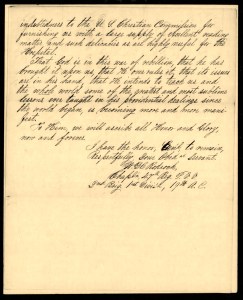 indebtedness to the U. S. Christian Commission for
furnishing us with a large supply of excellent reading
matter and such delicacies as are highly useful for the
Hospital.
That God is in this war of rebellion, that he has
brought it upon us, that He overrules it, that its issues
are in his hand, that He intends to teach us and
the whole world some of the greatest and most sublime
lessons ever taught in his providential dealings since
the world began, is becoming more and more mani-
fest.
To Him, we will ascribe all Honor and Glory,
now and forever.
I have the honor, to remain,
Respectfully Your Obdt Servant.
Chapln 47th Reg. P. V.
2nd Brig. 1st Divis. 19th A. C.